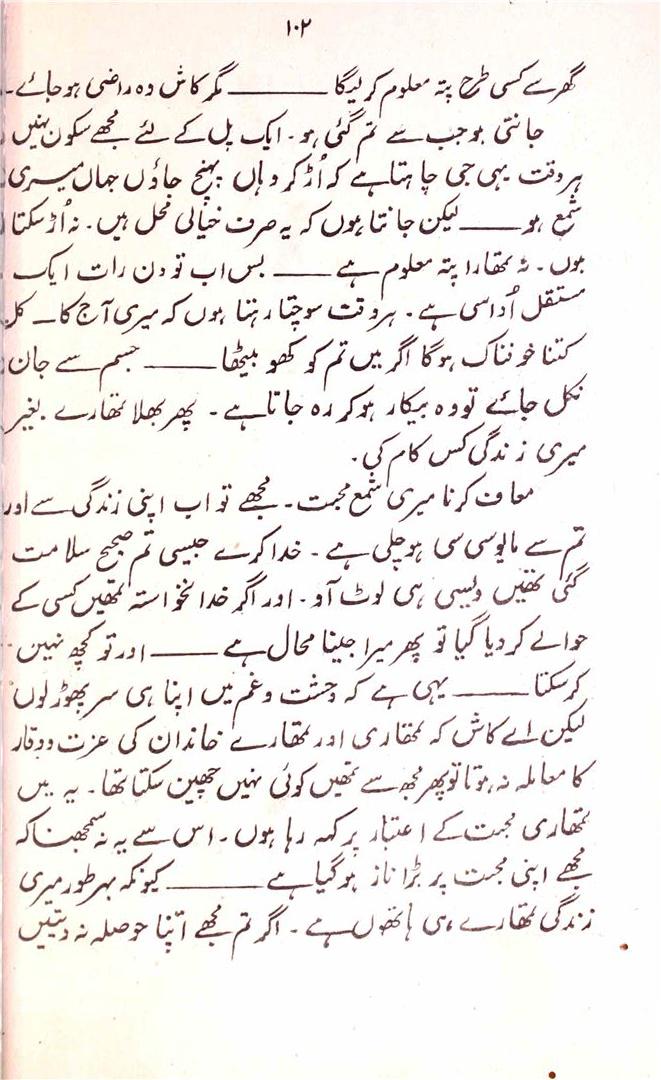 ۱۰۲
گھر سے کسی طرح پتہ معلوم کر لیگا ــــــــ مگر کاش وہ راضی ہو جائے۔
جانتی ہو جب سے تم گئی ہو۔ ایک پل کے لئے مجھے سکون نہیں
ہر وقت یہی جی چاہتا ہے کہ اُڑ کر وہاں پہنچ جاؤں جہاں میری
شمع ہو ــــــــ لیکن جانتا ہوں کہ یہ صرف خیالی محل ہیں۔ نہ اُڑ سکتا
ہوں۔ نہ تمھارا پتہ معلوم ہے ــــــــ بس اب تو دن رات ایک
مستقل اُداسی ہے۔ ہر وقت سوچتا رہتا ہوں کہ میری آج کا۔ کل
کتنا خوفناک ہوگا اگر میں تم کو کھو بیٹھا ــــــــ جسم سے جان
نکل جائے تو وہ بیکار ہو کر رہ جاتا ہے۔ پھر بھلا تمھارے بغیر
میری زندگی کس کام کی۔
معاف کرنا میری شمع محبت۔ مجھے تو اب اپنی زندگی سے اور
تم سے مایوسی سی ہو چلی ہے۔ خدا کرے جیسی تم صحیح سلامت
گئی تھیں ویسی ہی لوٹ آو۔ اور اگر خدا نخواستہ تمھیں کسی کے
حوالے کر دیا گیا تو پھر میرا جینا محال ہے ــــــــ اور تو کچھ نہیں
کر سکتا ــــــــ یہی ہے کہ وحشت و غم میں اپنا ہی سر پھوڑ لوں
لیکن اے کاش کہ تمھاری اور تمھارے خاندان کی عزت و وقار
کا معاملہ نہ ہوتا تو پھر مجھ سے تمھیں کوئی نہیں چھین سکتا تھا۔ یہ میں
تمھاری محبت کے اعتبار پر کہہ رہا ہوں۔ اس سے یہ نہ سمجھنا کہ
مجھے اپنی محبت پر بڑا ناز ہو گیا ہے ــــــــ کیونکہ بہر طور میری
زندگی تمھارے ہی ہاتھوں ہے۔ اگر تم مجھے اتنا حوصلہ نہ دیتیں